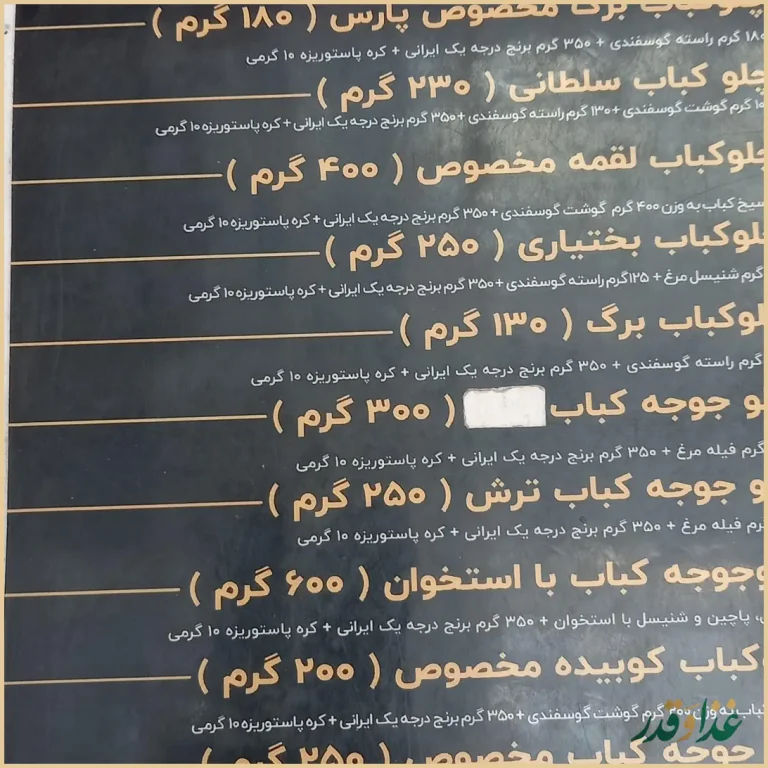 مخصوص پارس ( ۱۸۰ گرم )
۱۸۰ گرم راسته گوسفندی + ۳۵۰ گرم برنج درجه یک ایرانی + کره پاستوریزه ۱۰ گرمی
چلو کباب سلطانی ( ۲۳۰ گرم )
گرم گوشت گوسفندی +۱۳۰ گرم راسته گوسفندی +۳۵۰ گرم برنج درجه یک ایرانی + کره پاستوریزه ۱۰ گرمی
چلوکباب لقمه مخصوص ( ۴۰۰ گرم )
سیخ کباب به وزن ۴۰۰ گرم گوشت گوسفندی +۳۵۰ گرم برنج درجه یک ایرانی + کره پاستوریزه ۱۰ گرمی
لوکباب بختیاری ( ۲۵۰ گرم )
گرم شنیسل مرغ + ۱۲۵گرم راسته گوسفندی +۳۵۰ گرم برنج درجه یک ایرانی + کره پاستوریزه ۱۰ گرمی
لوکباب برگ ( ۱۳۰ گرم )
گرم راسته گوسفندی + ۳۵۰ گرم برنج درجه یک ایرانی + کره پاستوریزه ۱۰ گرمی
و جوجه کباب ( ۳۰۰ گرم )
گرم فیله مرغ + ۳۵۰ گرم برنج درجه یک ایرانی + کره پاستوریزه ۱۰ گرمی
و جوجه کباب ترش ( ۲۵۰ گرم )
رم فیله مرغ + ۳۵۰ گرم برنج درجه یک ایرانی + کره پاستوریزه ۱۰ گرمی
وجوجه کباب با استخوان ( ۶۰۰ گرم )
، پاچین و شنیسل با استخوان + ۳۵۰ گرم برنج درجه یک ایرانی + کره پاستوریزه ۱۰ گرمی
وکباب کوبیده مخصوص ( ۲۰۰ گرم )
کباب به وزن ۲۰۰ گرم گوشت گوسفندی +۳۵۰ گرم برنج درجه یک ایرانی + کره پاستوریزه ۱۰ گرمی
جوجه کباب مخصوص ( ۲۵۰ گرم )
غذا و قدر